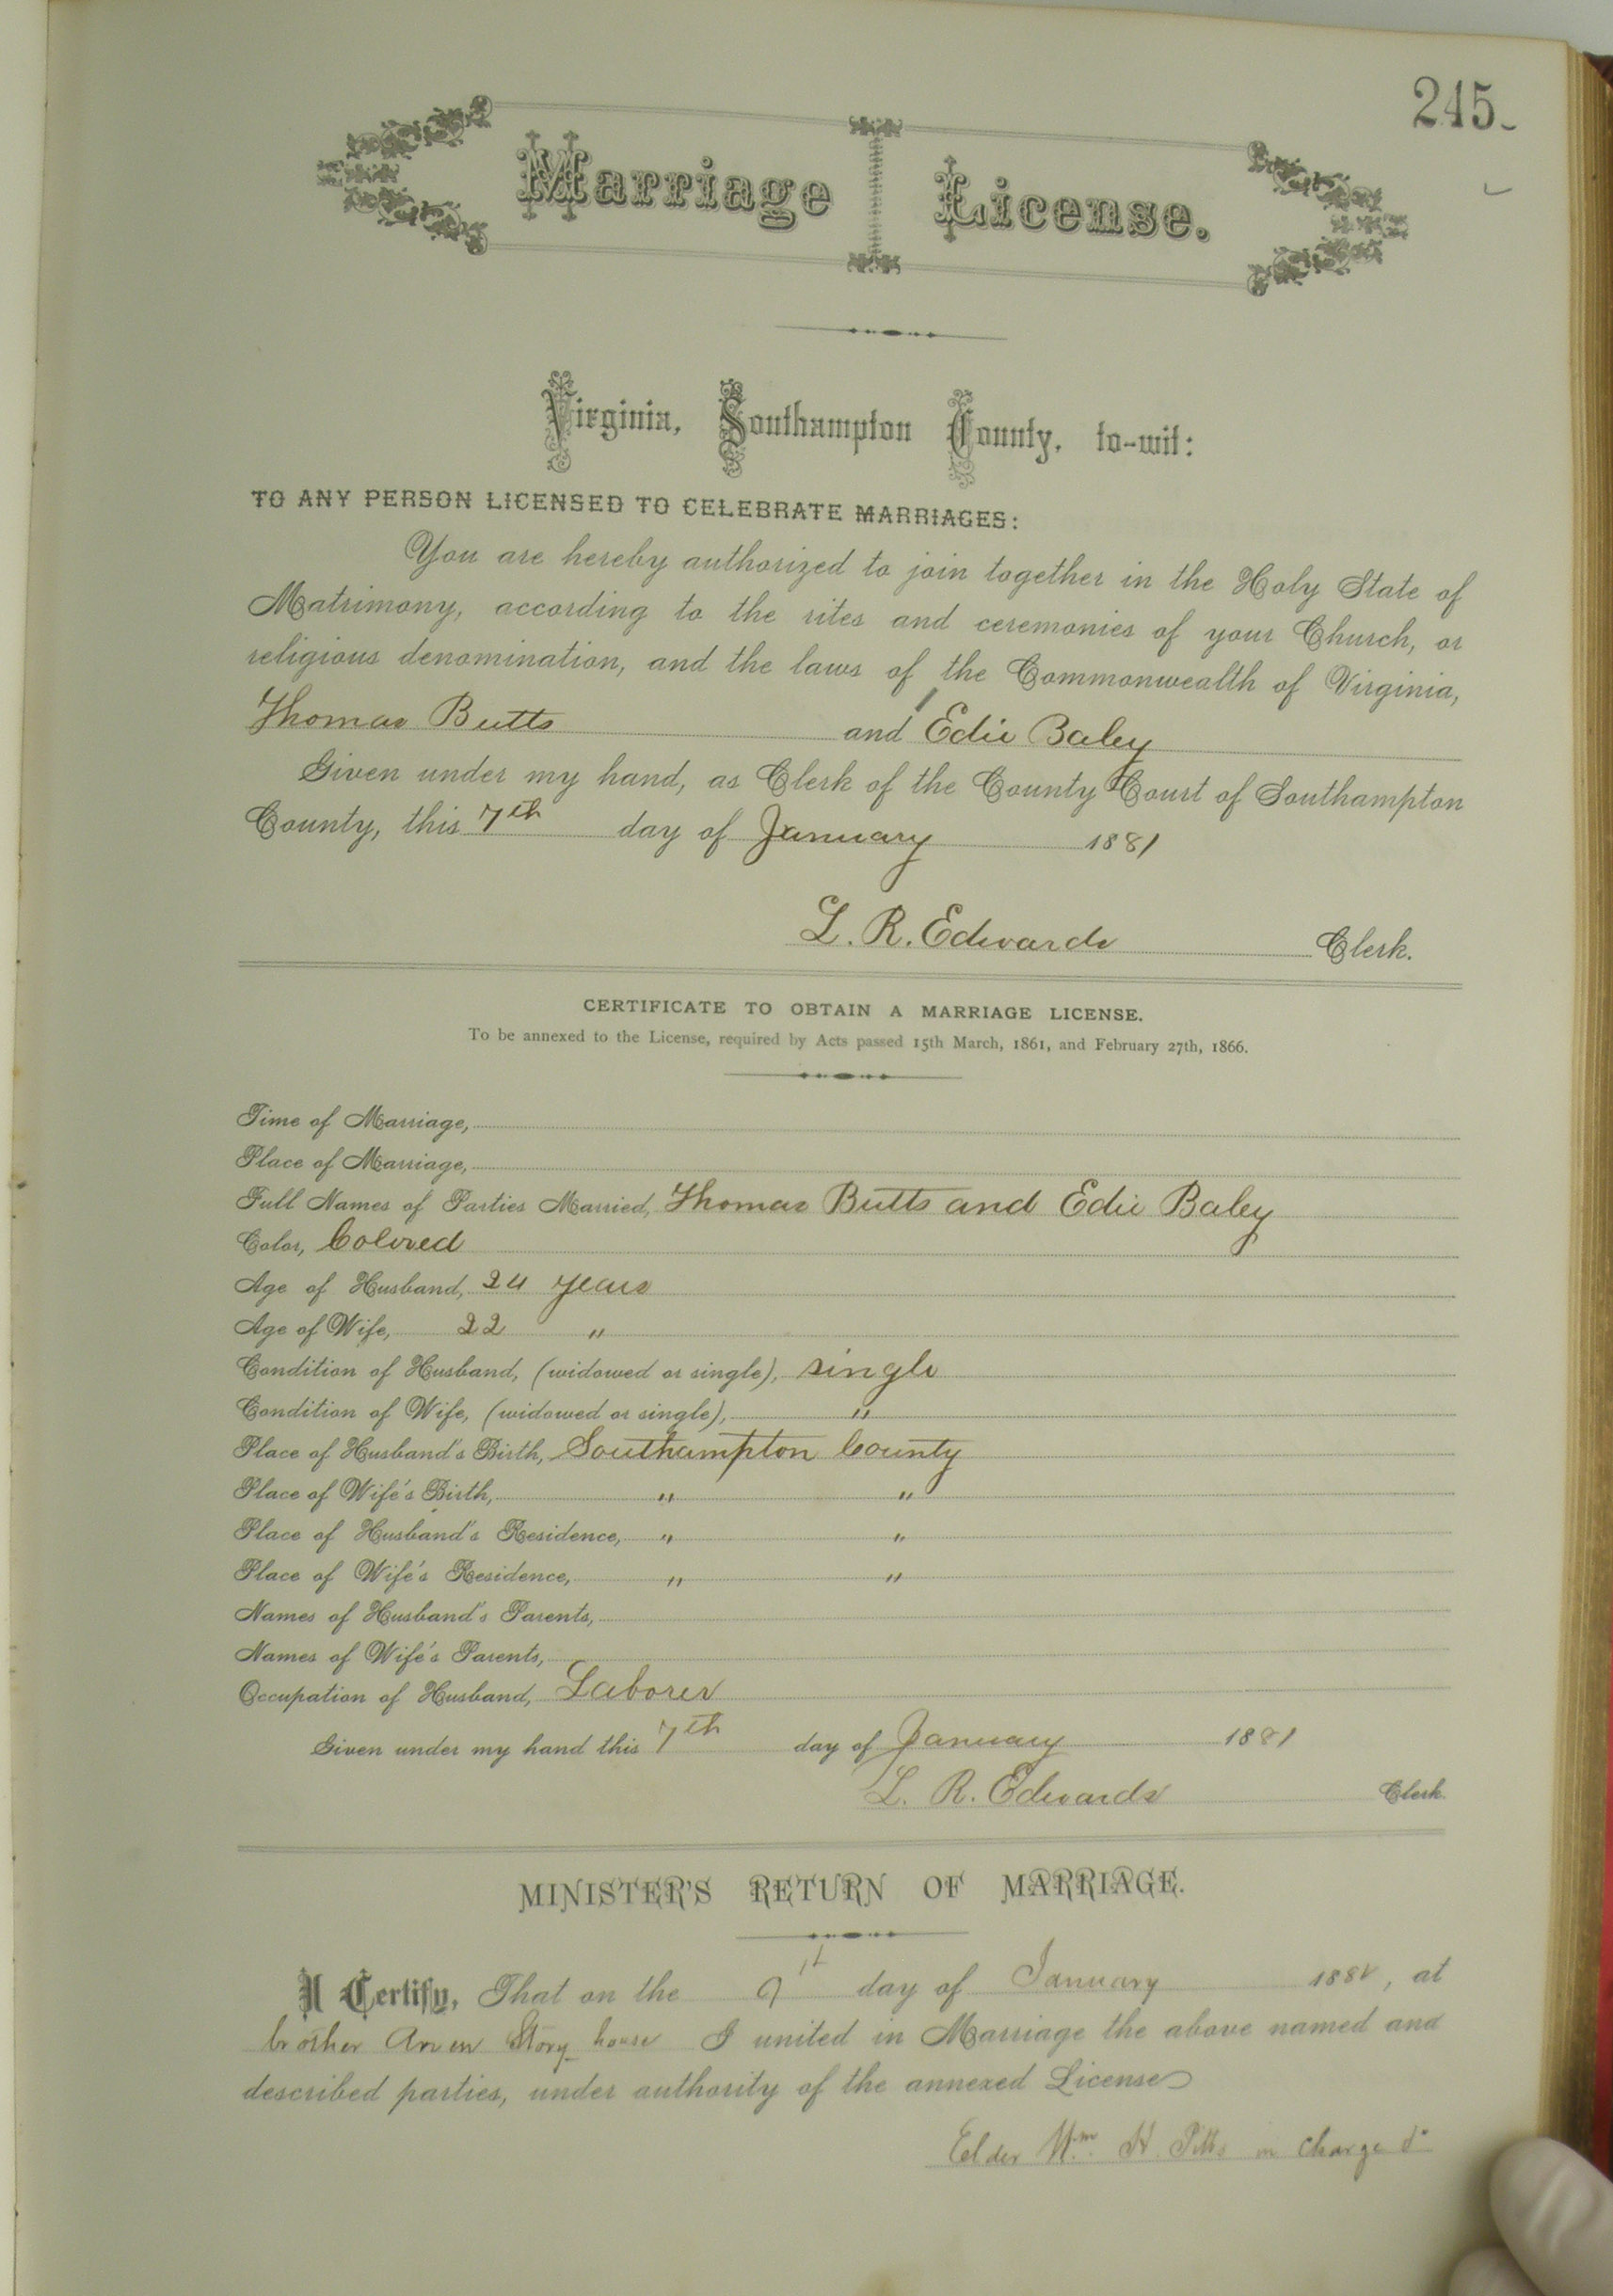 245
Marriage License.
Virginia, Southampton County, to-wit:
TO ANY PERSON LICENSED TO CELEBRATE MARRIAGES:
You are hereby authorized to join together in the Holy State of
Matrimony, according to the rites and ceremonies of your Church, or
religious denomination, and the laws of the Commonwealth of Virginia,
Thomas Butts and Edie Baley
Given under my hand, as Clerk of the County Court of Southampton
County, this 7th day of January 1881
L. R. Edwards Clerk.
CERTIFICATE TO OBTAIN A MARRIAGE LICENSE.
To be annexed to the License, required by Acts passed 15th March, 1861, and February 27th, 1866.
Time of Marriage,
Place of Marriage,
Full Names of Parties Married, Thomas Butts and Edie Baley
Color, Colored
Age of Husband, 24 years
Age of Wife, 22 "
Condition of Husband, (widowed or single), single
Condition of Wife, (widowed or single), "
Place of Husband's Birth, Southampton County
Place of Wife's Birth, " "
Place of Husband's Residence, " "
Place of Wife's Residence, " "
Names of Husband's Parents,
Names of Wife's Parents,
Occupation of Husband, Laborer
Given under my hand this 7th day of January 1881
L. R. Edwards Clerk.
MINISTER'S RETURN OF MARRIAGE.
I Certify, That on the 9 day of January 188 , at
brother Story house I united in Marriage the above named and
described parties, under authority of the annexed License
Elder Wm. H. Pitts in Charge